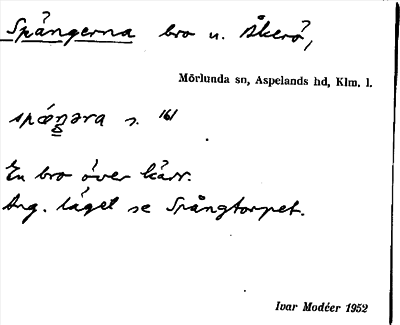 Spångerna bro u. Åkerö,
Mörlunda sn, Aspelands hd, Klm. l.
spæŋəra s. 161
En bro över kärr.
Ang. läget se Spångtorpet.
Ivar Modéer 1952